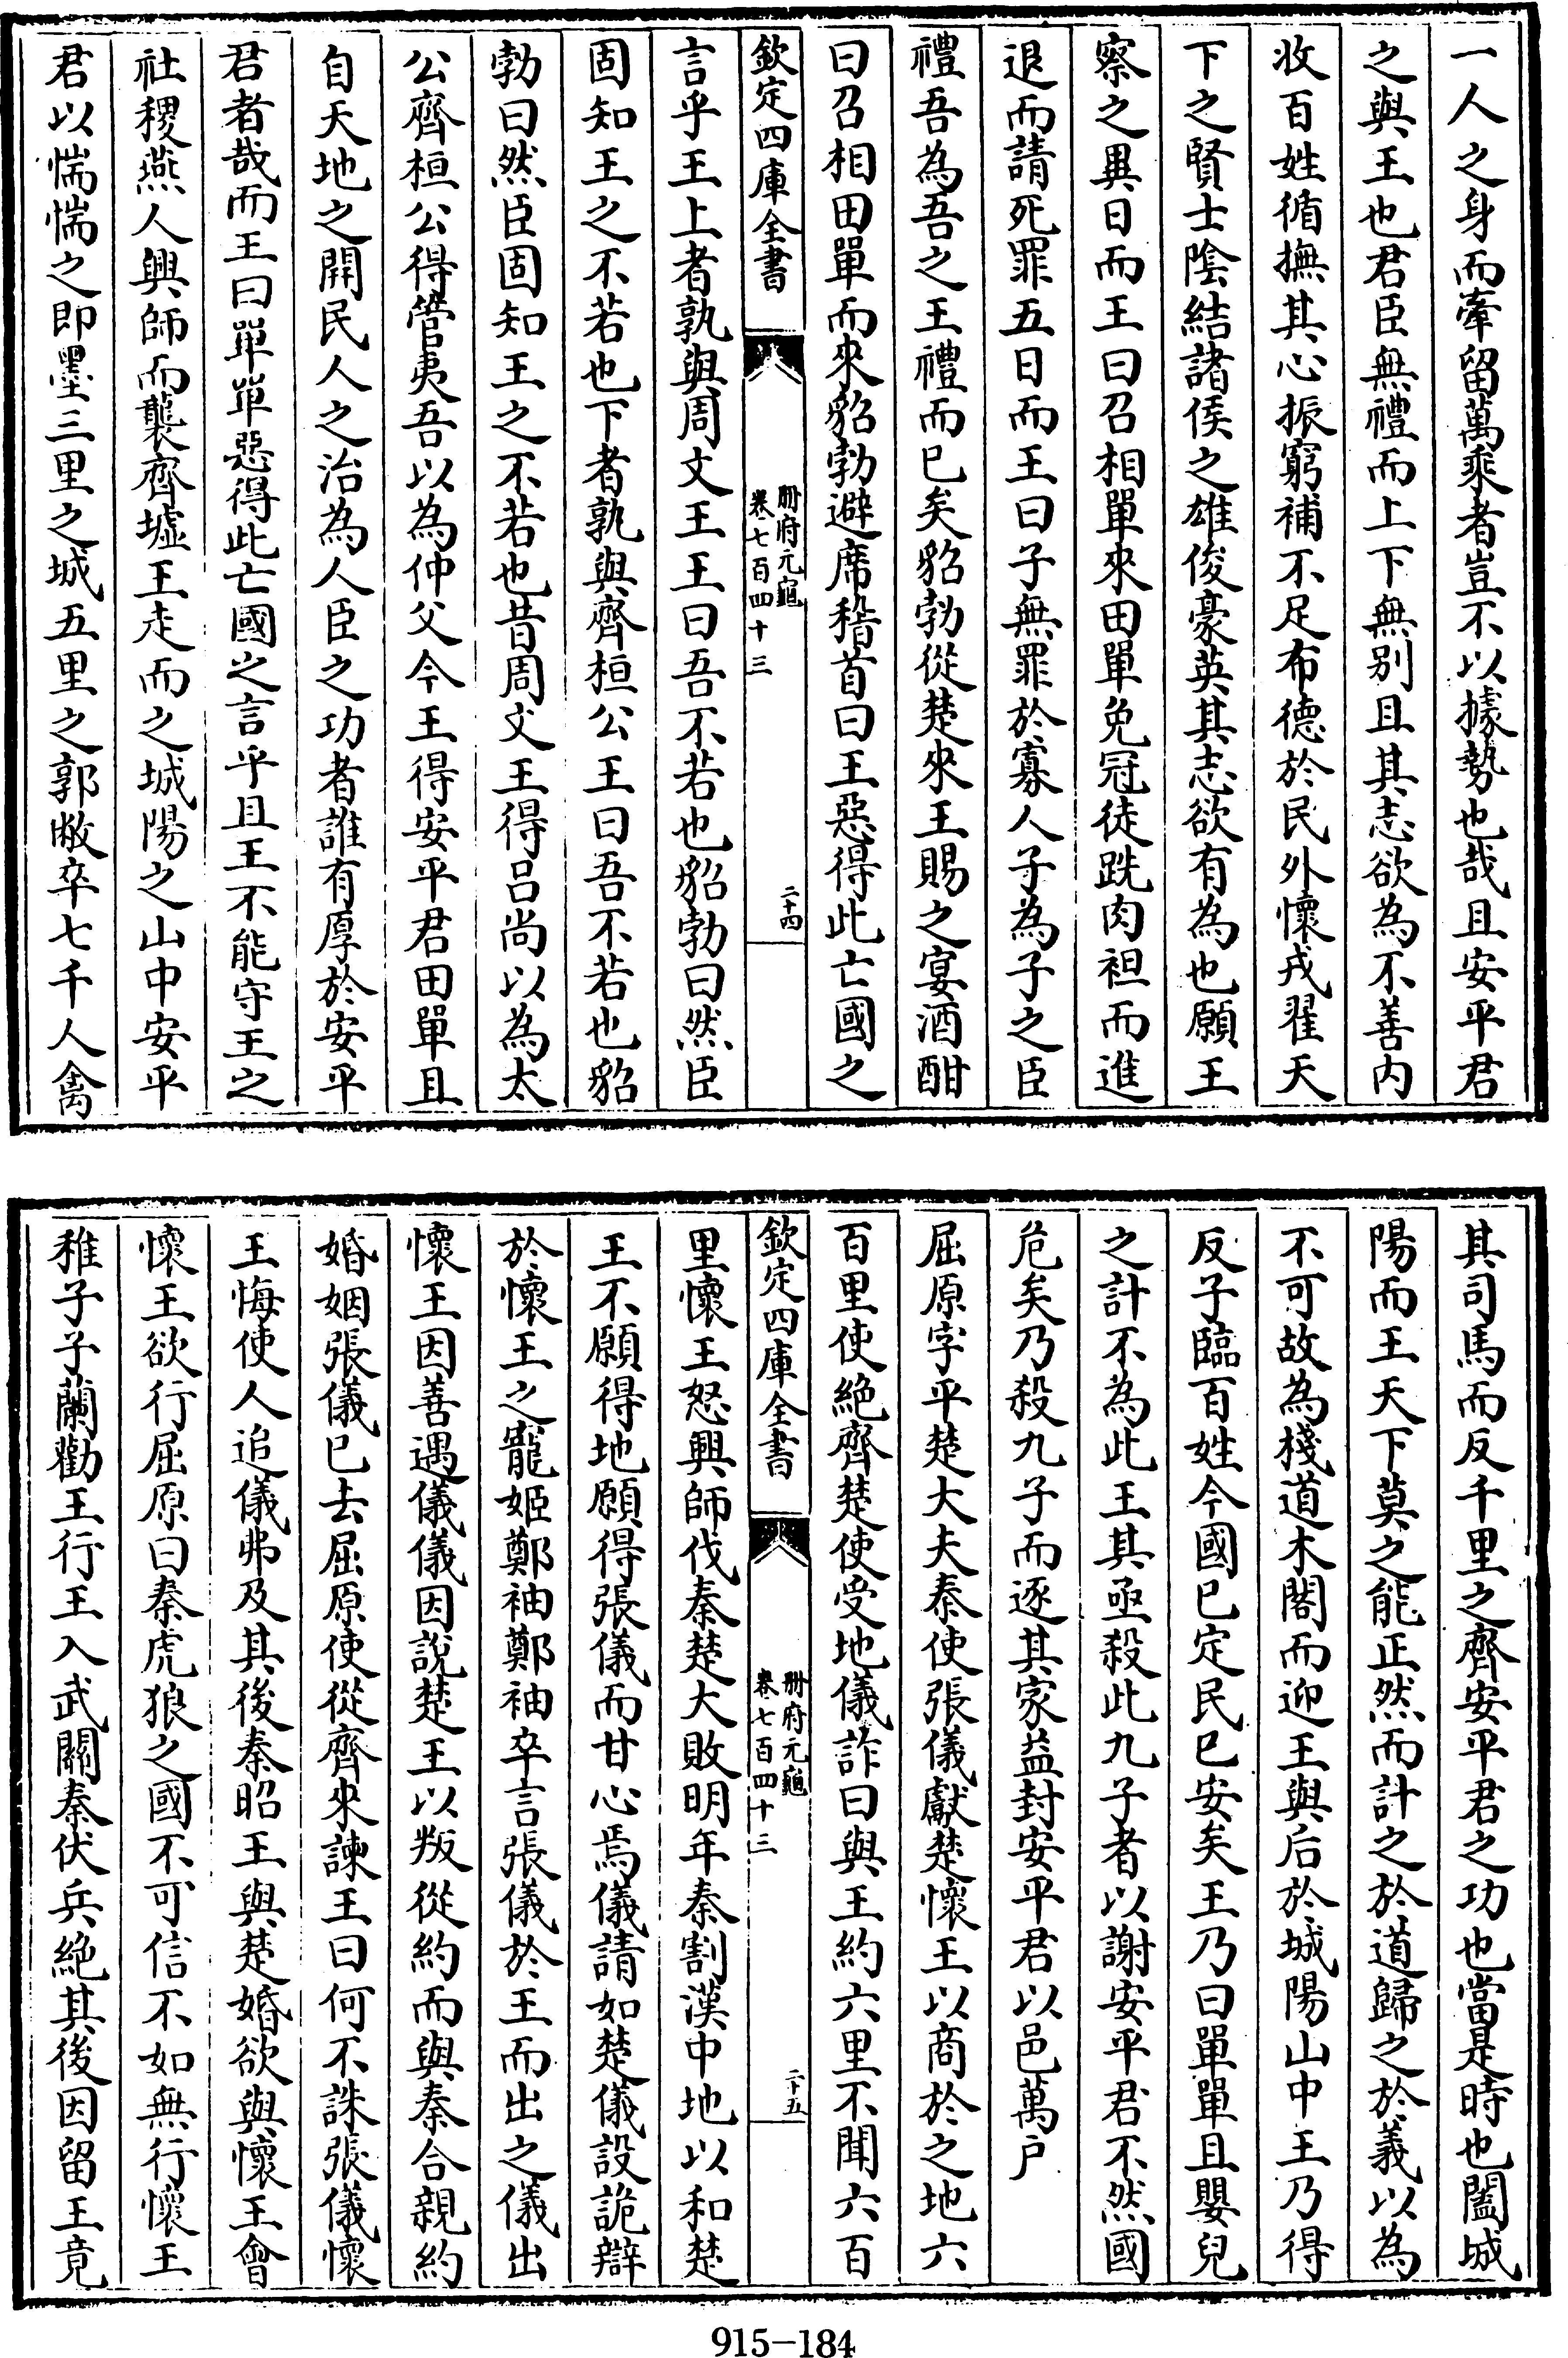 一人之身而牽留萬乘者豈不以據勢也哉且安平君
之與王也君臣無禮而上下無别且其志欲為不善内
收百姓循撫其心振窮補不足布德於民外懷戎翟天
下之賢士陰結諸侯之雄俊豪英其志欲有為也願王
察之異日而王曰召相單來田單免冠徒跣肉袒而進
退而請死罪五日而王曰子無罪於寡人子為子之臣
禮吾為吾之王禮而已矣貂勃從楚來王賜之宴酒酣
曰召相田單而來貂勃避席稽首曰王惡得此亡國之
欽定四庫全書
冊府元龜
卷七百四十三
二十四
言乎王上者孰與周文王王曰吾不若也貂勃曰然臣
固知王之不若也下者孰與齊桓公王曰吾不若也貂
勃曰然臣固知王之不若也昔周文王得吕尚以為太
公齊桓公得管夷吾以為仲父今王得安平君田單且
自天地之開民人之治為人臣之功者誰有厚於安平
君者哉而王曰單單惡得此亡國之言乎且王不能守王之
社稷燕人興師而襲齊墟王走而之城陽之山中安平
君以惴惴之即墨三里之城五里之郭敝卒七千人禽
其司馬而反千里之齊安平君之功也當是時也闔城
陽而王天下莫之能正然而計之於道歸之於義以為
不可故為棧道木閣而迎王與后於城陽山中王乃得
反子臨百姓今國已定民已安矣王乃曰單單且嬰兒
之計不為此王其亟殺此九子者以謝安平君不然國
危矣乃殺九子而逐其家益封安平君以邑萬户
屈原字平楚大夫秦使張儀獻楚懷王以商於之地六
百里使絶齊楚使受地儀詐曰與王約六里不聞六百
欽定四庫全書
冊府元龜
卷七百四十三
二十五
里懷王怒興師伐秦楚大敗明年秦割漢中地以和楚
王不願得地願得張儀而甘心焉儀請如楚儀設詭辯
於懷王之寵姬鄭袖鄭袖卒言張儀於王而出之儀出
懷王因善遇儀儀因說楚王以叛從約而與秦合親約
婚姻張儀已去屈原使從齊來諫王曰何不誅張儀懷
王悔使人追儀弗及其後秦昭王與楚婚欲與懷王會
懷王欲行屈原曰秦虎狼之國不可信不如無行懷王
稚子子蘭勸王行王入武關秦伏兵絶其後因留王竟
915-184